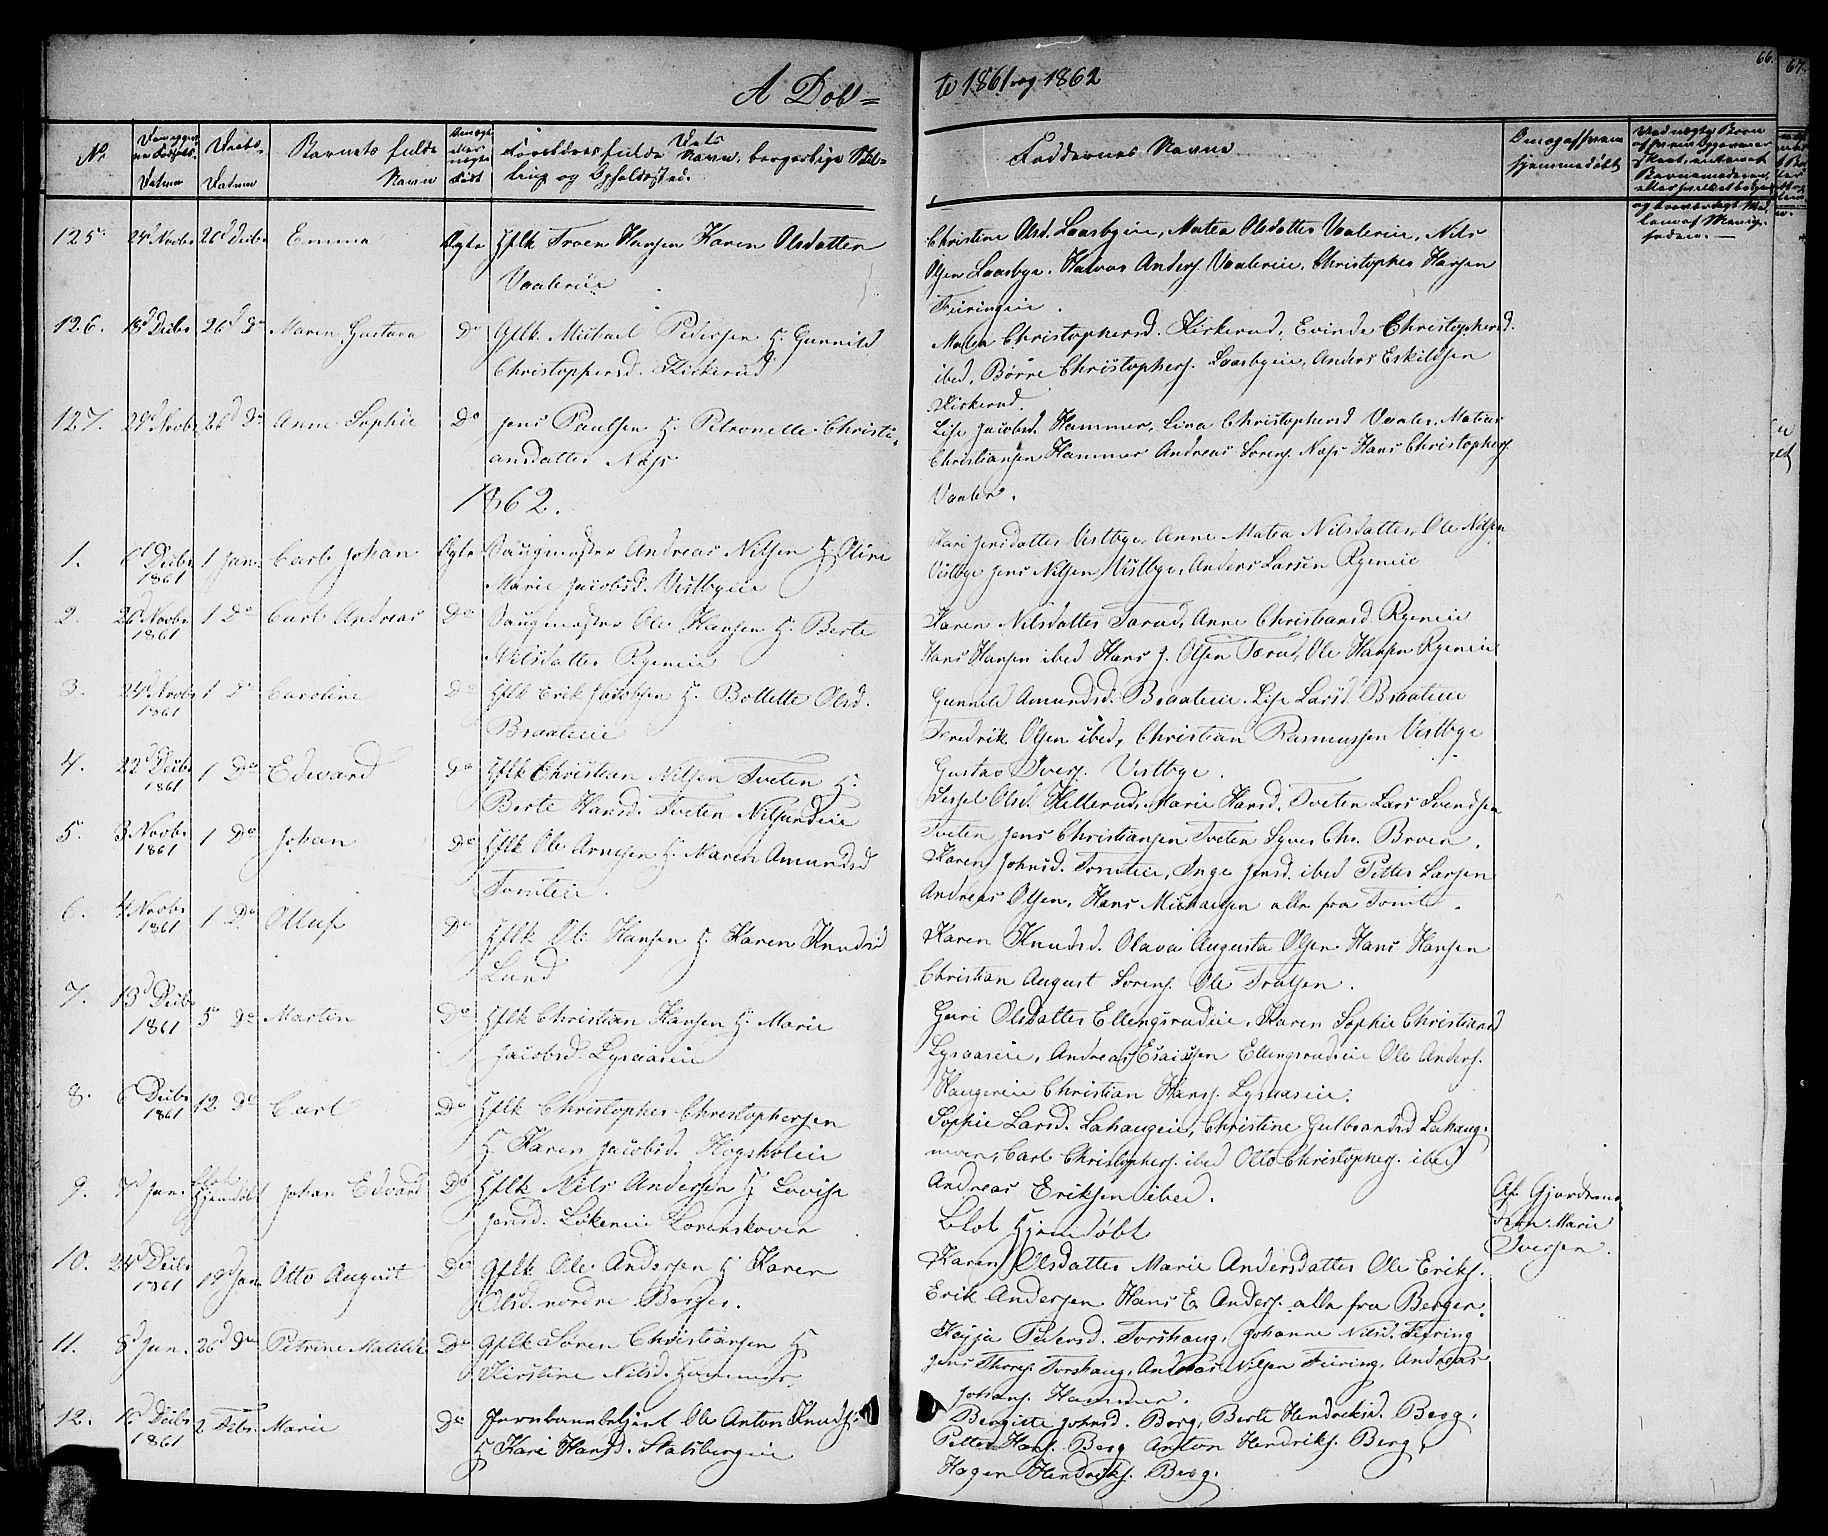 A Døb=
te 1861 og 1862
66.
67.
No
Datum
Daabs-
Datum
Barnets fulde
Navn
Ægte
eller
uægte
Født
Forældres fulde Navn, borgerlige Stil-
ling og Opholdssted.
Faddernes Navne
hjemmedøbt
125.
24d Novbr
26d Decbr
Emma
Ægte
Gflk Troen Hansen Karen Olsdatter
Vaalereie
Christine Olsd. Laasbyeie, Matea Olsdatter Vaalereie, Nils
Olsen Laasbye. Halvor Anders. Vaalereie, Christopher Hansen
Feiringeie.
126.
18d Decbr
26d Do
Maren Gustava
Do
Gflk. Mickael Pedersen H. Gunnild
Christophersd. Kirkerud
Matea Christophersd. Kirkerud, Evinde Christophersd.
ibed, Børre Christophers. Laasbyeie, Anders Eskildsen
Kirkerud.
127.
29d Novbr
26d Do
Anne Sophie
Do
Jens Paulsen H. Petronelle Christi-
ansdatter Næss
Lise Jacobsd. Hammer, Lina Christophersd Vaaler, Matias
Christiansen Hammer Andreas Sorens. Næss Hans Christophers.
Vaaler.
1862.
1.
6d Decbr
1861
1 Jan.
Carl Johan
Ægte
Saugmester Andreas Nilsen H Oline
Marie Jacobsd. Vestbyeie
Kari Jensdatter Vestbye, Anne Matea Nilsdatter, Ole Nilsen
Vestbye Jens Nilsen Vestbye, Anders Larsen Ryeneie
2.
26d Novbr
1861
1 Do
Carl Andreas
Do
Saugmester Ole Hansen H. Berte
Nilsdatter Ryeneie
Karen Nilsdatter Tærud, Anne Christiansd. Ryeneie
Hans Hansen ibed Hans J. Olsen Tærud, Ole Hansen Ryeneie
3.
24d Novbr
1861
1 Do
Caroline
Do
Gflk Erik Jacobsen H. Bollette Olsd.
Braateeie
Gunnild Amundsd. Braateie. Lise Larsd. Braateeie
Fredrik Olsen ibed, Christian Rasmussen Vestbye
Gustav Ivers. Vestbye.
4.
22d Decbr
1861
1 Do
Edvard
Do
Gflk Christian Nilsen Tveten H.
Berte Hansd. Tveten Nilsundeie
Sissel Olsd. Hillerud, Marie Hansd. Tveten Lars Svendsen
Tveten Jens Christiansen Tveten Syver Chr. Broen.
5.
3 Novbr
1861
1 Do
Johan
Do
Gflk Ole Arnesen H. Maren Amundsd
Tomteie.
Karen Johnsd. Tomteie, Inge Jensd. ibed Petter Larsen
Andreas Olsen, Hans Michaelsen alle fra Tomte.
6.
4 Novbr
1861
1 Do
Olluf
Do
Gflk Ole Hansen H. Karen Knudsd
Lund
Karen Knudsd. Olava Augusta Olsen Hans Hansen
Christian August Sorens. Ole Trulsen.
7.
13d Decbr
1861
5 Do
Martin
Do
Gflk Christian Hansen H. Marie
Jacobsd. Lysaaseie
Guri Olsdatter Ellingsrudeie, Karen Sophie Christiansd
Lysaaseie, Andreas Esaissen Ellingsrudeie Ole Anders.
Haugereie Christian Hans. Lysaaseie.
8.
6 Decbr
1861
12 Do
Carl
Do
Gflk Christopher Christophersen
H Karen Jacobsd. Hogsholeie
Sophie Larsd. Lahaugeie, Christine Gulbrandsd Lahaug-
moen, Carl Christophers. ibed Otto Christophers. ibed
Andreas Eriksen ibed.
9.
7d Jan.
blot
Hjemdøbt
Johan Edvard
Do
Gflk Nils Andersen H Lovise
Jensd. Løkeneie Lorenskoven
Blot Hjemdøbt
Af Gjordemo-
deren Marie
Iversen.
10.
24d Decbr
1861
19d Jan
Otto August
Do
Gflk Ole Andersen H Karen
Olsd. nordre Berger.
Karen Olsdatter Marie Andersdatter Ole Eriks.
Erik Andersen Hans E. Anders. alle fra Berger.
11.
8d Jan.
26d Do
Petrine Matilde
Do
Gflk Søren Christiansen H
Kirstine Nilsd. Hammer
Kajsa Pedersd. Torshaug, Johanne Nilsd. Feiring
Jens Thores. Torshaug, Andreas Nilsen Feiring, Andreas
Johans. Hammer.
12.
1861
2 Febr.
Marie
Do
Jernbanebetjent Ole Anton Knuds.
H Kari Hansd. Stalsbergeie
Bergitte Johnsd. Borg, Berte Hendriksd. Berg.
Petter Hans. Berg Anton Hendriks. Berg,
Hagen Hendriks. Berg.